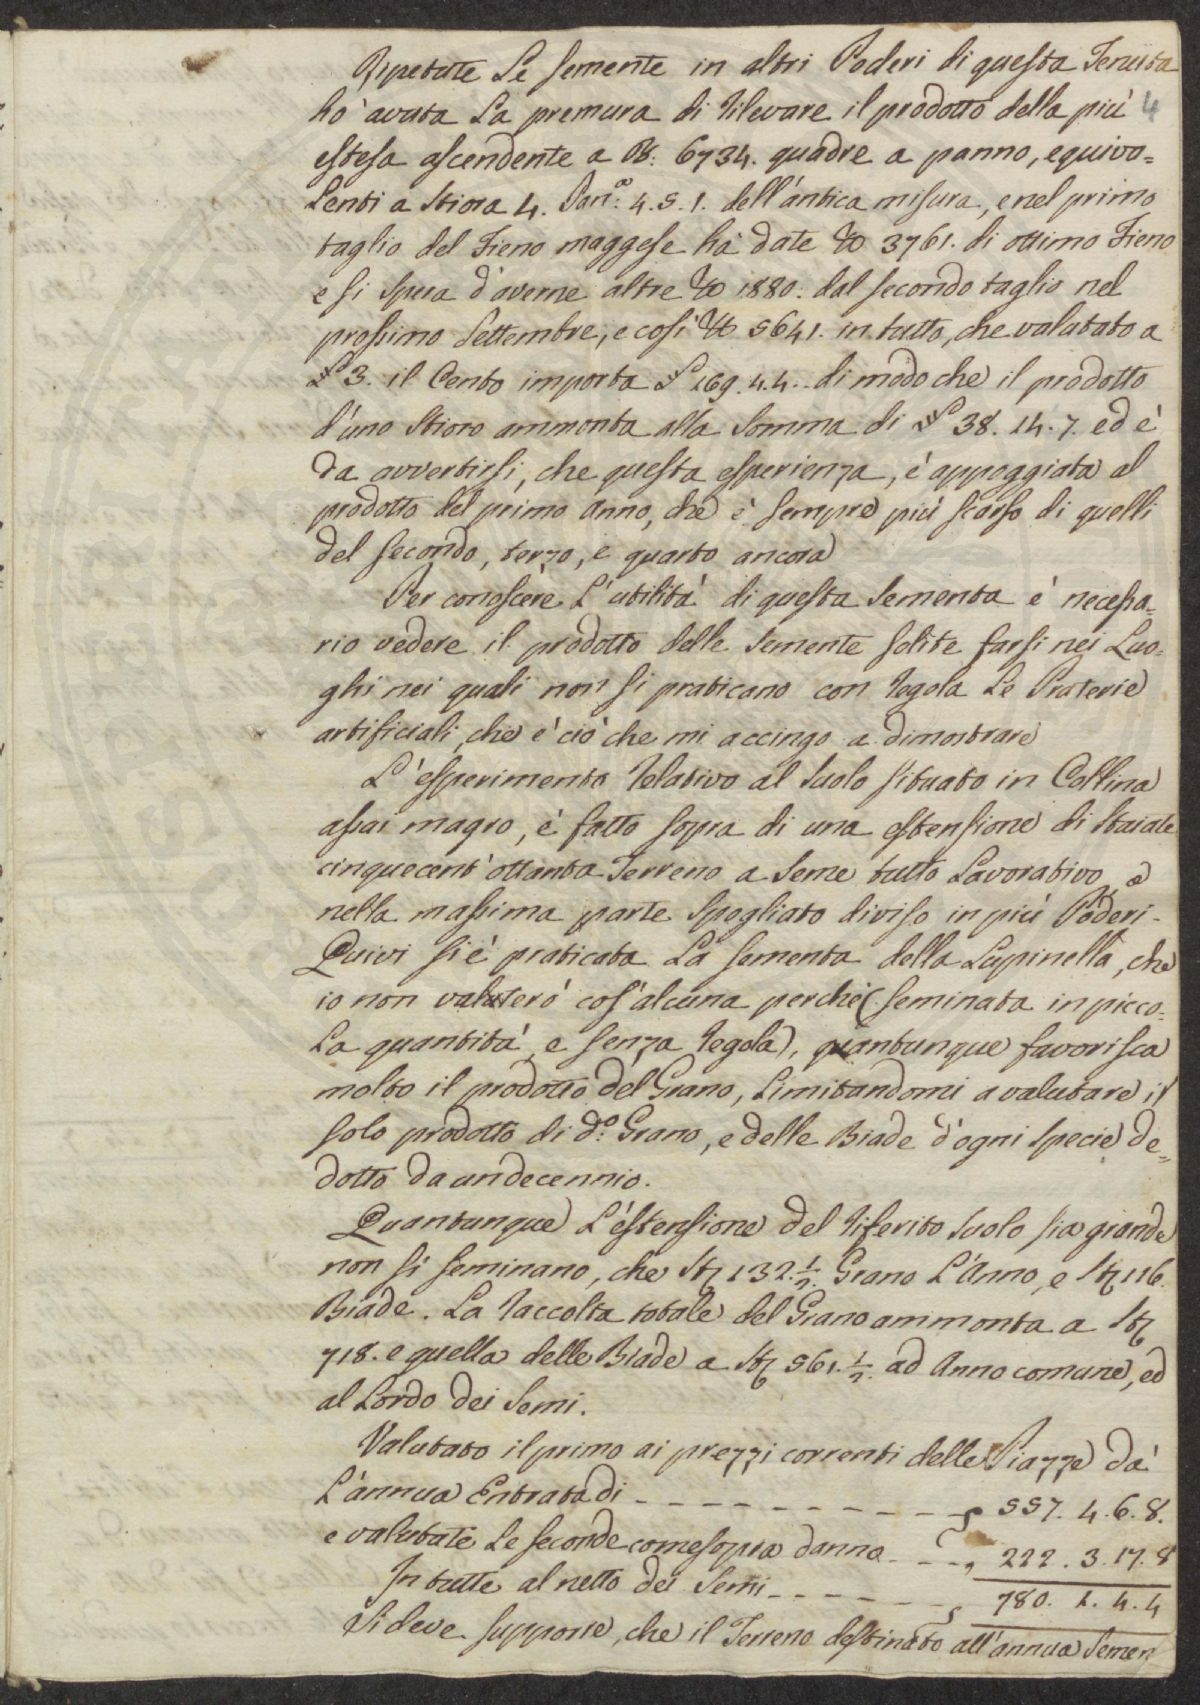 Ripetute Le semente in altri Poderi di questa Tenuta
hò avuta La premura di rilevare il prodotto della più
4
estesa ascendente a B: 6734. quadre a panno, equiva=
Lenti a Stiora 4. Pan:º 4.5.1. dell'antica misura, e nel primo
taglio del Fieno maggese hà date 3761. di ottimo Fieno
e si spera d'averne altre 1880. dal secondo taglio nel
prossimo Settembre, e così 5641. in tutto, che valutato a
3. il Cento importa 169.4.4.. di modo che il prodotto
d'uno Stioro ammonta alla Somma di 38.14.7. ed è
da avvertirsi, che questa esperienza, è appoggiata al
prodotto del primo Anno, che è sempre più scarso di quelli
del secondo, terzo, e quarto ancora
Per conoscere L'utilità di questa Sementa è necessa=
rio vedere il prodotto delle Semente solite farsi nei Luo=
ghi nei quali non si praticano con regola Le Praterie
artificiali, che è ciò che mi accingo a dimostrare
L'esperimento relativo al Suolo situato in Collina
assai magro, è fatto sopra di una estensione di Staiate
cinquecent'ottanta Terreno a Seme tutto Lavorativo, e
nella massima parte spogliato diviso in più Poderi.
Quivi si è praticata La sementa della Lupinella, che
io non valuterò cos'alcuna perchè (seminata in picco=
La quantità e senza regola), quantunque favorisca
molto il prodotto del Grano, Limitandomi a valutare il
solo prodotto di d:º Grano, e delle Biade d'ogni specie de=
dotto da un decennio.
Quantunque L'estensione del riferito Suolo sia grande
non si seminano, che St 132.½. Grano L'Anno, e St 116.
Biade. La raccolta totale del Grano ammonta a St
718. e quella delle Biade a St 561.½. ad Anno comune, ed
al Lordo dei Semi.
Valutato il primo ai prezzi correnti delle Piazze dà
L'annua Entrata di - - - - - - - - - - - 557.4.6.8.
e valutate Le seconde come sopra danno - - - 222.3.17.8
In tutte al netto dei Semi - - - - - - - 780.1.4.4
Si deve supporre, che il Terreno destinato all'annua Semen